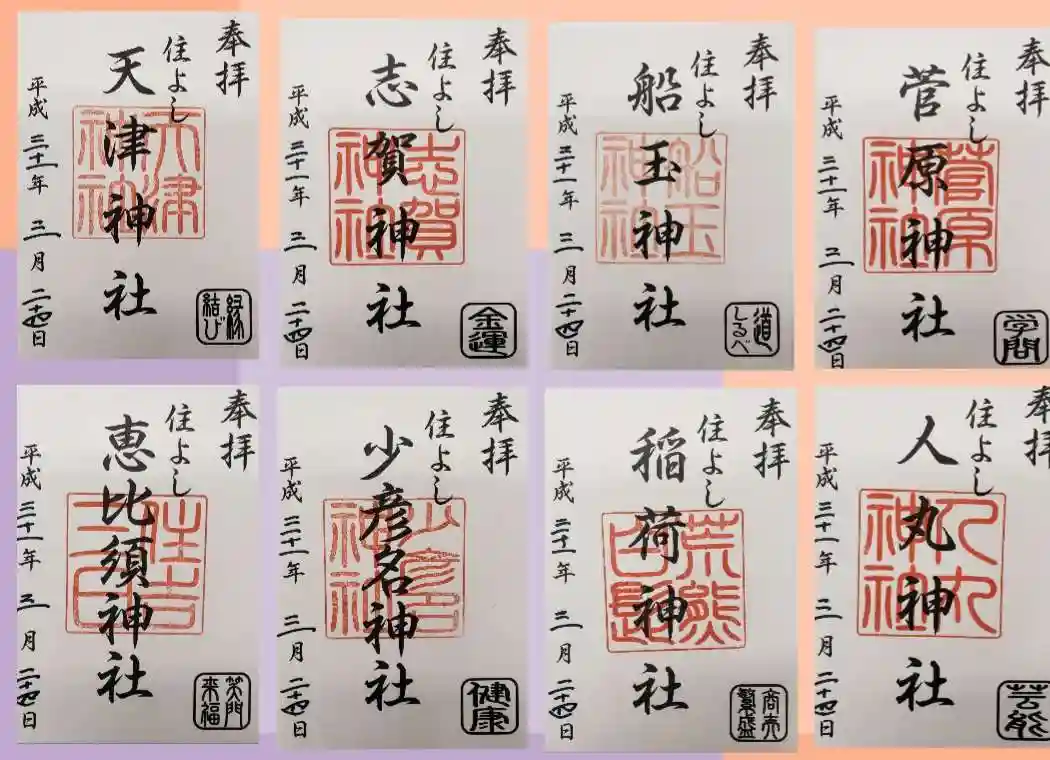 奉拝
住よし
天津神社
天津神社
平成三十一年 三月 二十四日
縁結び
奉拝
住よし
志賀神社
志賀神社
平成三十一年 三月 二十四日
金運
奉拝
住よし
船玉神社
船玉神社
平成三十一年 三月 二十四日
道しるべ
奉拝
住よし
菅原神社
菅原神社
平成三十一年 三月 二十四日
学問
奉拝
住よし
恵比須神社
平成三十一年 三月 二十四日
笑門来福
奉拝
住よし
少彦名神社
平成三十一年 三月 二十四日
健康
奉拝
住よし
稲荷神社
平成三十一年 三月 二十四日
商売繁盛
奉拝
住よし
人丸神社
人丸神社
平成三十一年 三月 二十四日
芸能